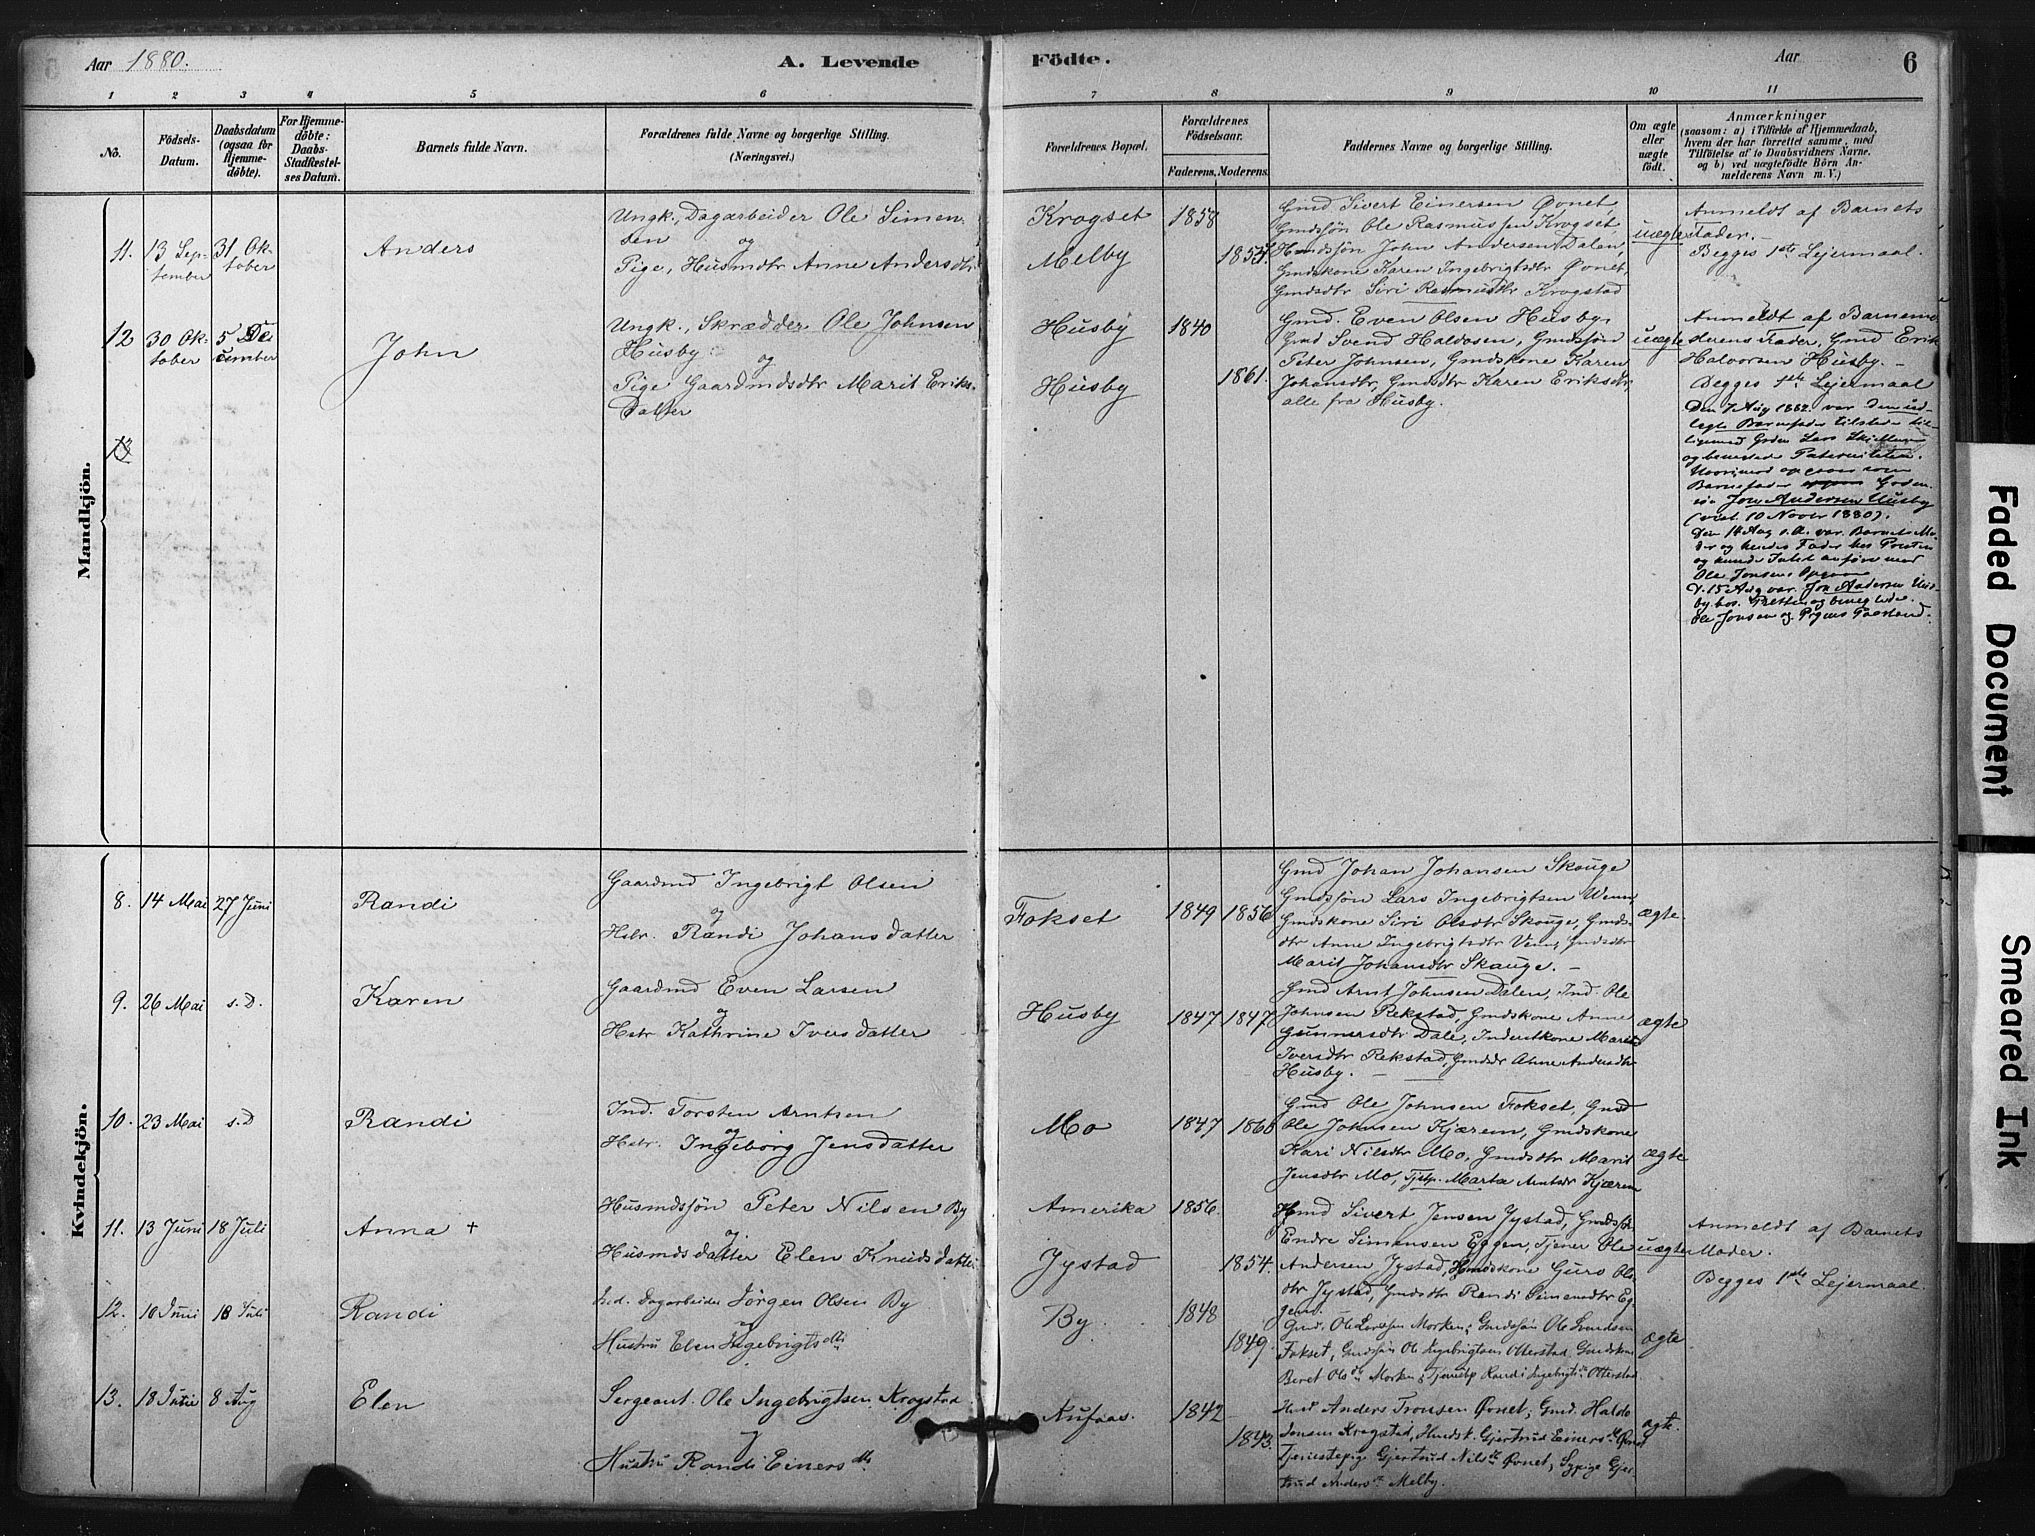 Aar 1880.
A. Levende
Födte.
Aar
6
1 2 3 4 5 6 7 8 9 10 11
No.
Födsels-Datum.
Daabsdatum (ogsaa for Hjemme-döbte).
For Hjemme-döbte: Daabs-Stadfæstel-ses Datum.
Barnets fulde Navn.
Forældrenes fulde Navne og borgerlige Stilling.
(Næringsvei.)
Forældrenes Bopæl.
Forældrenes Födselsaar.
Faderens. Moderens.
Faddernes Navne og borgerlige Stilling.
Om ægte eller uægte födt.
Anmærkninger
(saasom: a) i Tilfælde af Hjemmedaab, hvem der har forrettet samme, med Tilföielse af to Daabsvidners Navne, og b) ved uægtefödte Börn Anmelderens Navn m. V.)
Mandkjön.
11. 13 September 31 Oktober
Anders
Ungk., Dagarbeider Ole Simensen
og
Pige, Husmdtr Anne Andersdtr
Krogset
Melby
1858
Gmd Sivert Einersen Öonet,
Gmdssjön Ole Rasmussen Krogset,
Hmdssjön John Andersen Dalen,
Gmdskone Karen Ingebrigtsdtr Öonet,
Gmdsdtr Siri Rasmusdtr Krogstad
uægte
Anmeldt af Barnets
Fader.
Begges 1ste Lejermaal.
12 30 Oktober 5 December
John
Ungk., Skrædder Ole Johnsen
Husby
og
Pige Gaardmdsdtr Marit Eriks-
Datter
Husby
Husby
1840
1861.
Gmd. Even Olsen Husby,
Gmd Svend Haldosen, Gmdsjön
Peter Johnsen, Gmdskone Karen
Johansdtr, Gmdsdtr Karen Eriksdtr,
alle fra Husby.
uægte
Anmeldt af Barnemo-
derens Fader, Gmd Erik
Halvorsen Husby.
Begges 1ste Lejermaal
Den 7 Aug 1882 var den ud-
lagte Barnefader tilstede til-
ligemed Gmden Lars
og benegtede Paterniteten.
Barnefader
Jon Andersen Husby
(vist. 10 Novbr 1880).
Den 14 Aug s.A. var Barnets Mo-
der og hendes Fader hos Presten
og kunde Intet anföre mod
Ole Jonsens Opgave
D. 15 Aug var Jon Andersen Hus-
by hos Presten og benegtede
Ole Jonsen og Pigens Paastand.
13
Kvindekjön.
8. 14 Mai 27 Juni
Randi
Gaardmd Ingebrigt Olsen
og
Hstr. Randi Johansdatter
Fokset
1849 1856
Gmd Johan Johansen Skauge
Gmdssjön Lars Ingebrigtsen Wenn,
Gmdskone Siri Olsdtr Skauge, Gmds-
dtr Anne Ingebrigtsdtr Venn, Gmdsdtr
Marit Johansdtr Skauge.
ægte
9. 26 Mai s.D.
Karen
Gaardmd Even Larsen
og
Hstr Kathrine Iversdatter
Husby
1847 1847
Gmd Arnt Johnsen Dalen, Ind. Ole
Johnsen Rekstad, Gmdskone Anne
Gunnersdtr Dale, Inderstkone Marit
Iversdtr Rekstad, Gmdsdtr Anne Andersdtr
Husby.
ægte
10. 23 Mai s.D
Randi
Ind. Torsten Arntsen
og
Hstr. Ingeborg Jensdatter
Mo
1847 1860
Gmd Ole Johnsen Fokset, Gmd
Ole Johnsen Kjærem, Gmdskone
Kari Nilsdtr Mo, Gmdsdtr Marit
Jensdtr Mo, Tjstp. Marta Arntsdtr Kjærem
ægte
11. 13 Juni 18 Juli
Anna +
Husmdssjön Peter Nilsen By
og
Husmdsdatter Elen Knudsdatter
Amerika
Jystad
1856.
1854.
Hmd Sivert Jensen Jystad, Gmdssjön
Endre Simonsen Eggen, Tjener Ole
Andersen Jystad, Hmdskone Guro Ols-
dtr Jystad, Gmdsdtr Randi Simonsdtr Eg-
gen.
uægte
Anmeldt af Barnets
Moder.
Begges 1ste Lejermaal.
12. 10 Juni 18 Juli
Randi
Ind. Dagarbeider Jörgen Olsen By
og
Hustru Elen Ingebrigtsdtr
By
1848
1849.
Gmd. Ole Larssen Morken, Gmdssjön Ole Svendsen
Fokset, Gmdssjön Ole Ingebrigtsen Otterstad, Gmdskone
Beret Olsdtr Morken, Tjenestep Randi Ingebrigtsdtr Otterstad
ægte
13. 18 Junie 8 Aug
Elen
Sergeant Ole Ingebrigtsen Krogstad
og
Hustru Randi Einersdtr
Aufaas.
1842
1843.
Hmd Anders Tronsen Öonet, Gmd. Haldo
Jonsen Krogstad, Hmdsk. Gjertrud Einersdtr Öonet
Tjenestepige Gjertrud Nilsdtr Öonet, Sypige Gjer-
trud Andersdtr Melby.
ægte.
Faded Document
Smeared Ink